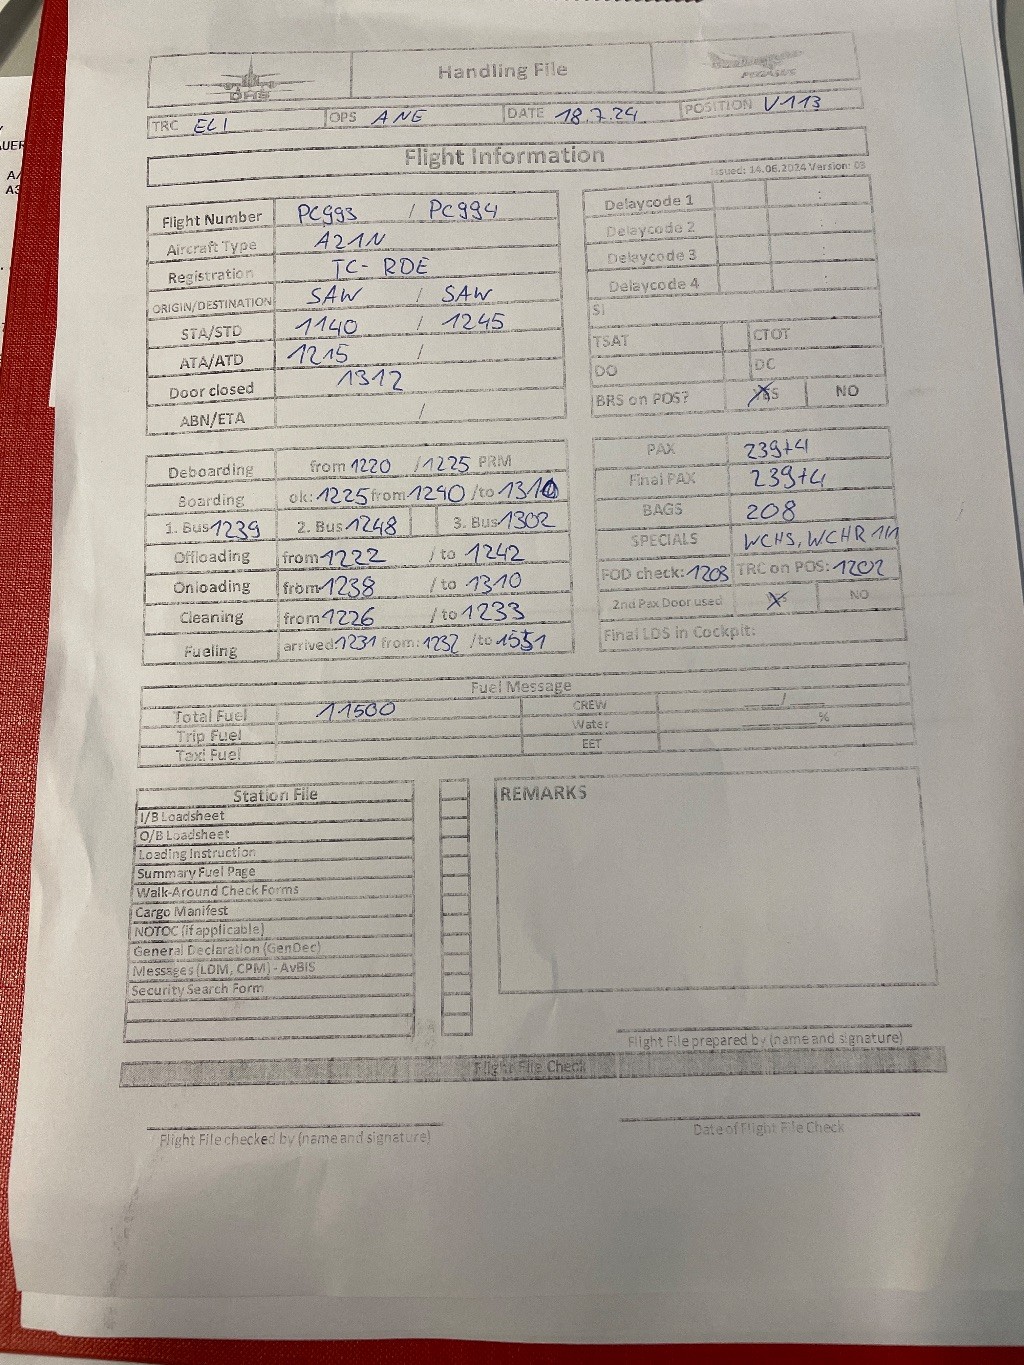 DAS Handling File PEGASUS
TRC ELI OPS ANE DATE 18.7.24 POSITION V113
Flight Information
Issued: 14.06.2024 Version: 03
Flight Number PC993 / PC994
Aircraft Type A21N
Registration TC-RDE
ORIGIN/DESTINATION SAW / SAW
STA/STD 1140 / 1245
ATA/ATD 1215 /
Door closed 1312
ABN/ETA /
Delaycode 1 :
Delaycode 2 :
Delaycode 3 :
Delaycode 4 :
SI
TSAT CTOT
DO DC
BRS on POS? YES NO
Deboarding from 1220 / 1225 PRM
Boarding ok: 1225 from 1240 / to 1310
1. Bus 1239 2. Bus 1248 3. Bus 1302
Offloading from 1222 / to 1242
Onloading from 1238 / to 1310
Cleaning from 1226 / to 1233
Fueling arrived: 1231 from: 1232 / to
PAX 239+4
Final PAX 239+4
BAGS 208
SPECIALS WCHS, WCHR
FOD check: 1203 TRC on POS: 1202
2nd Pax Door used NO
Final LDS in Cockpit:
Fuel Message
Total Fuel 11500 CREW /
Trip Fuel Water %
Taxi Fuel EET
Station File
I/B Loadsheet
O/B Loadsheet
Loading Instruction
Summary Fuel Page
Walk-Around Check Forms
Cargo Manifest
NOTOC (if applicable)
General Declaration (GenDec)
Messages (LDM, CPM) - AvBIS
Security Search Form
REMARKS
Flight File prepared by (name and signature)
Flight File Check
Flight File checked by (name and signature)
Date of Flight File Check